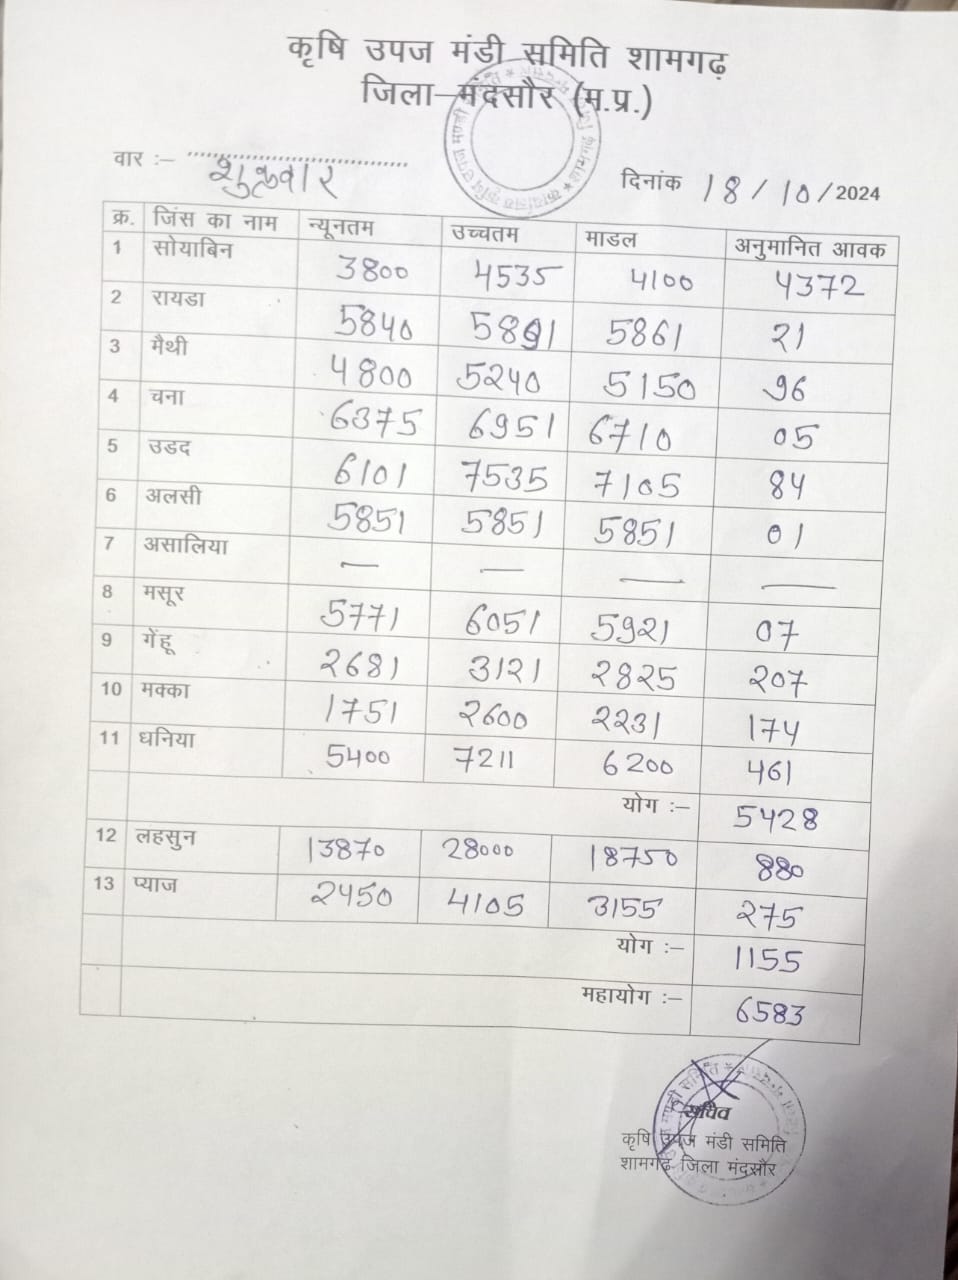 कृषि उपज मंडी समिति शामगढ़
जिला–मंदसौर (म.प्र.)
वार :– शुक्रवार
दिनांक 18/10/2024
क्र. जिंस का नाम न्यूनतम उच्चतम माडल अनुमानित आवक
1 सोयाबिन 3800 4535 4100 4372
2 रायडा 5840 5891 5861 21
3 मैथी 4800 5240 5150 96
4 चना 6375 6951 6710 05
5 उडद 6101 7535 7105 84
6 अलसी 5851 5851 5851 01
7 असालिया — — — —
8 मसूर 5771 6051 5921 07
9 गेंहू 2681 3121 2825 207
10 मक्का 1751 2600 2231 174
11 धनिया 5400 7211 6200 461
योग :– 5428
12 लहसुन 13870 28000 18750 880
13 प्याज 2450 4105 3155 275
योग :– 1155
महायोग :– 6583
सचिव
कृषि उपज मंडी समिति
शामगढ़ जिला मंदसौर